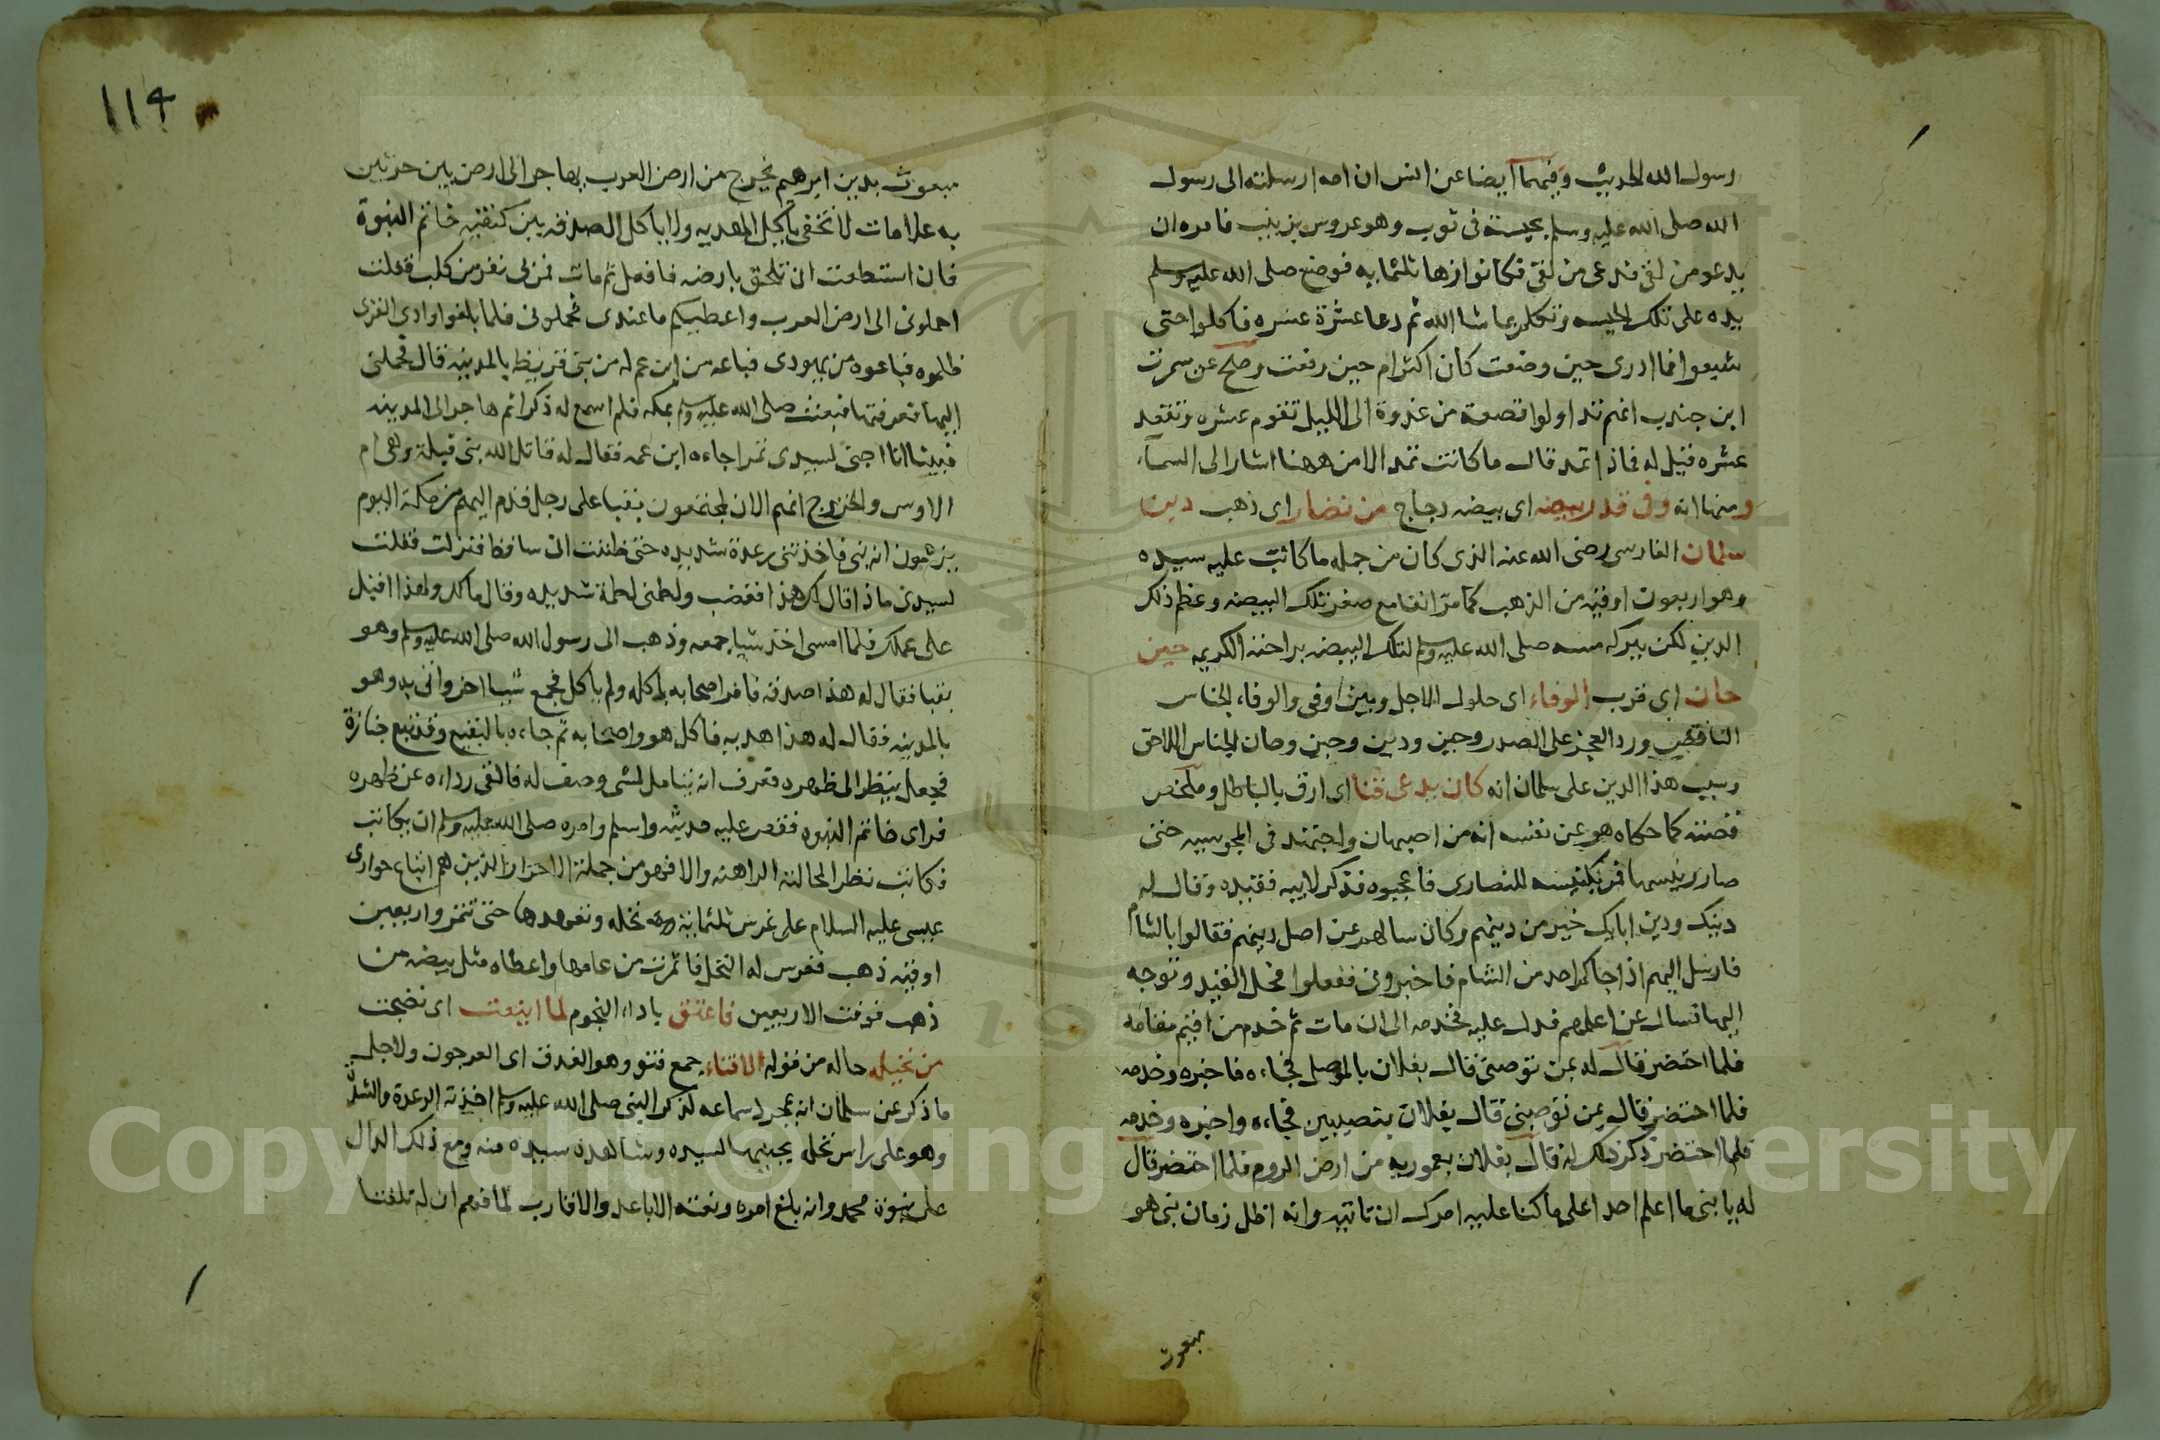 رسول الله الحديث وفيهما ايضا عن انس ان امه ارسلته الى رسول
الله صلى الله عليه وسلم بحيسة فى ثوب وهو عروس بزينب فامره ان
يدعو من لقى فدعى من لقى فكانوا زها ثلثمايه فوضع صلى الله عليه وسلم
يده على تلك الحيسه وتكلم بما شا الله ثم دعا عشرة عشره فاكلوا حتى
شبعوا فما ادرى حين وضعت كان اكثر ام حين رفعت وصح عن سمرت
ابن جندب انهم تداولوا قصعة من غدوة الى الليل تقوم عشره وتقعد
عشره فقيل له فماذا تمد قال ما كانت تمد الا من ههنا اشار الى السماء
ومنها انه وفى قدر بيضه اى بيضه دجاج من نضار اى ذهب دين
سلمان الفارسى رضى الله عنه الذى كان من جمله ما كاتب عليه سيده
وهو اربعون اوقيه من الذهب كما مر انفا مع صغر تلك البيضه وعظم ذلك
الدين لكن ببركه مسه صلى الله عليه وسلم لتلك البيضه براحته الكريمه حين
حان اى قرب الوفاء اى حلول الاجل وبين اوفى والوفاء الجناس
الناقص ورد العجز على الصدر وحين ودين وحين وحان الجناس اللاحق
وسبب هذا الدين على سلمان انه كان يدعى قنا اى ارق بالباطل وملخص
قصته كما حكاه هو عن نفسه انه من اصبهان واجتهد فى المجوسيه حتى
صار رئيسها فمر بكنيسه للنصارى فاعجبوه فذكر لابيه فقيده وقال له
دينك ودين اباك خير من دينهم وكان سالهم عن اصل دينهم فقالوا بالشام
فارسل اليهم اذا جاكم احد من الشام فاخبرونى ففعلوا فحل القيد وتوجه
اليها فسال عن اعلمهم فدل عليه فخدمه الى ان مات ثم خدم من اقيم مقامه
فلما احتضر قال له بمن توصنى قال بفلان بالموصل فجاءه فاخبره وخدمه
فلما احتضر قال بمن توصنى قال بفلان بنصيبين فجاءه واخبره وخدمه
فلما احتضر ذكر ذلك له قال بفلان بعموريه من ارض الروم فلما احتضر قال
له يا بنى ما اعلم احدا على ما كنا عليه امرك ان تاتيه وانه اظل زمان نبى هو
مبعوث
١١٤
مبعوث بدين ابرهيم يخرج من ارض العرب يهاجر الى ارض بين حرتين
به علامات لا تخفى ياكل الهديه ولا ياكل الصدقه بين كتفيه خاتم النبوة
فان استطعت ان تلحق بارضه فافعل ثم مات فمر بى نفر من كلب فقلت
احملونى الى ارض العرب واعطيكم ما عندى فحملونى فلما بلغوا وادى القرى
ظلموه فباعوه من يهودى فباعه من ابن عم له من بنى قريظه بالمدينه قال فحملنى
اليها فعرفتها فبعث صلى الله عليه وسلم بمكه فلم اسمع له ذكرا ثم هاجر الى المدينه
فبينا انا اجنى لسيدى تمرا جاءه ابن عمه فقال له قاتل الله بنى قيلة وهى ام
الاوس والخزرج انهم الان لمجتمعون بقبا على رجل قدم اليهم من مكة اليوم
يزعمون انه نبى فاخذتنى رعدة شديده حتى ظننت انى ساقط فنزلت فقلت
لسيدى ماذا قال لك هذا فغضب ولطمنى لطمة شديده وقال مالك ولهذا اقبل
على عملك فلما امسى اخذ شيا جمعه وذهب الى رسول الله صلى الله عليه وسلم وهو
بقبا فقال له هذا صدقه فامر اصحابه باكله ولم ياكل فجمع شيا اخر واتى به وهو
بالمدينه فقال له هذا هديه فاكل هو واصحابه ثم جاءه بالبقيع وقد تبع جنازة
فجعل ينظر الى ظهره فعرف انه يتامل لشى وصف له فالقى رداءه عن ظهره
فراى خاتم النبوه فقص عليه حديثه واسلم وامره صلى الله عليه وسلم ان يكاتب
فكاتب نظرا لحالته الراهنه والا فهو من جملة الاحرار الذين هم اتباع حوارى
عيسى عليه السلام على غرس ثلثماية نخله وتعهدها حتى تثمر واربعين
اوقيه ذهب فغرس له النخل فاثمرت من عامها واعطاه مثل بيضه من
ذهب فوفت الاربعين فاعتق باداء النجوم لما اينعت اى نضجت
من نخيله حاله من قوله الاقناء جمع قنو وهو العذق اى العرجون ولاجل
ما ذكر عن سلمان انه بمجرد سماعه لذكر النبى صلى الله عليه وسلم اخذته الرعدة والشدة
وهو على راس نخله يجنيها لسيده وشاهده سيده منه ومع ذلك الدال
على نبوة محمد وانه بلغ امره ونعته الاباعد والاقارب لما قهم ان له تلفتا
Copyright © King Saud University